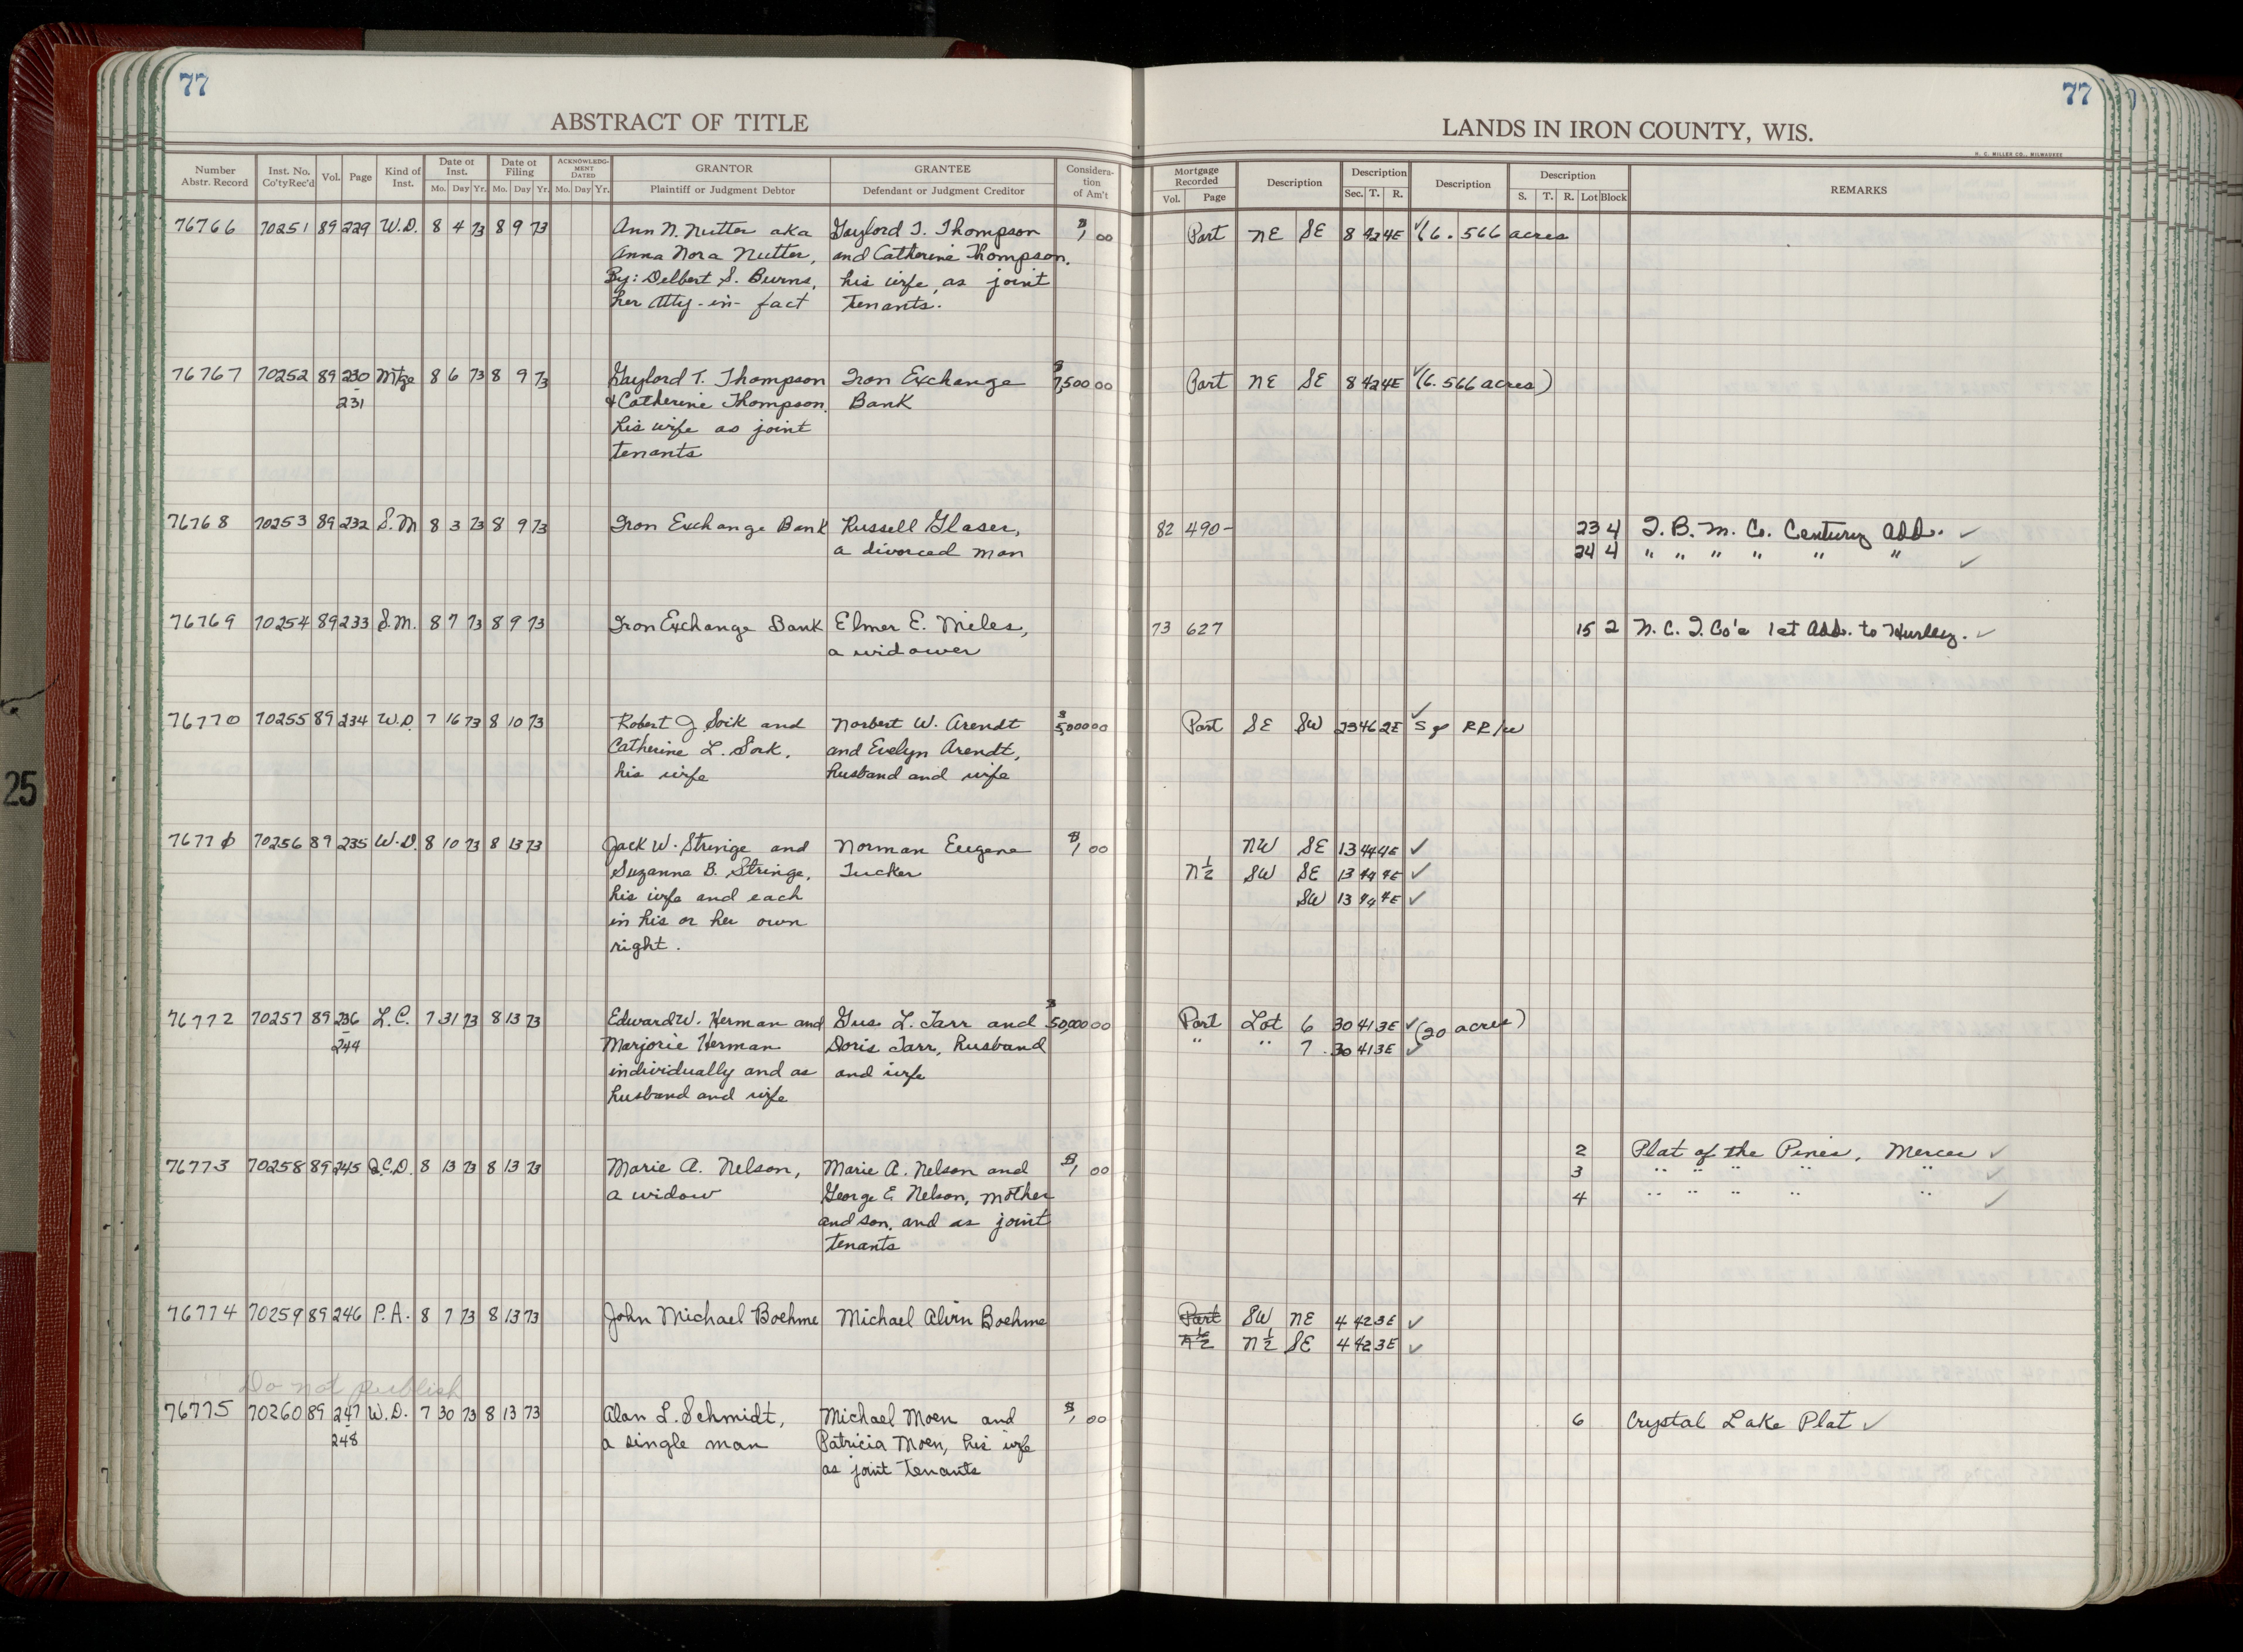 77
ABSTRACT OF TITLE
Number Abstr. Record | Inst. No. Co'tyRec'd | Vol. | Page | Kind of Inst. | Date of Inst. Mo. Day Yr. | Date of Filing Mo. Day Yr. | ACKNOWLEDGMENT DATED Mo. Day Yr. | GRANTOR Plaintiff or Judgment Debtor | GRANTEE Defendant or Judgment Creditor | Consideration of Am't
77
LANDS IN IRON COUNTY, WIS.
H. C. MILLER CO., MILWAUKEE
Mortgage Recorded Vol. Page | Description | Description Sec. T. R. | Description | Description S. T. R. Lot Block | REMARKS
76766 70251 89 229 W.D. 8 4 73 8 9 73 Ann N. Nutter aka Gaylord T. Thompson $1 00 Part NE SE 8 42 4E ✓(6.566 acres
Anna Nora Nutter, and Catherine Thompson,
By: Delbert S. Burns, his wife, as joint
her Atty-in-fact tenants.
76767 70252 89 230 Mtge 8 6 73 8 9 73 Gaylord T. Thompson Iron Exchange $7,500 00 Part NE SE 8 42 4E ✓(6.566 acres)
231 & Catherine Thompson, Bank
his wife as joint
tenants
76768 70253 89 232 S.M 8 3 73 8 9 73 Iron Exchange Bank Russell Glaser, 82 490- 23 4 I. B. M. Co. Century Add. ✓
a divorced man 24 4 " " " " " " ✓
76769 70254 89 233 S.M. 8 7 73 8 9 73 Iron Exchange Bank Elmer E. Miles, 73 627 15 2 N. C. I. Co's 1st Add. to Hurley. ✓
a widower
76770 70255 89 234 W.D. 7 16 73 8 10 73 Robert J. Soik and Norbert W. Arendt $5,000 00 Part SE SW 23 46 2E ✓ S of RR/W
Catherine L. Soik, and Evelyn Arendt,
his wife husband and wife
7677 70256 89 235 W.D. 8 10 73 8 13 73 Jack W. Stringe and Norman Eugene $1 00 NW SE 13 44 4E ✓
Suzanne B. Stringe, Tucker N½ SW SE 13 44 4E ✓
his wife and each SW 13 44 4E ✓
in his or her own
right.
76772 70257 89 236 L.C. 7 31 73 8 13 73 Edward W. Herman and Gus L. Tarr and $50,000 00 Part Lot 6 30 41 3E ✓ (20 acres)
244 Marjorie Herman Doris Tarr, husband " " 7 30 41 3E ✓
individually and as and wife
husband and wife
76773 70258 89 245 Q.C.D. 8 13 73 8 13 73 Marie A. Nelson, Marie A. Nelson and $1 00 2 Plat of the Pines, Mercer ✓
a widow George E. Nelson, mother 3 " " " " " ✓
and son, and as joint 4 " " " " " ✓
tenants
76774 70259 89 246 P.A. 8 7 73 8 13 73 John Michael Boehme Michael Alvin Boehme Part SW NE 4 42 3E ✓
N½ N½ SE 4 42 3E ✓
Do not publish
76775 70260 89 247 W.D. 7 30 73 8 13 73 Alan L. Schmidt, Michael Moen and $1 00 6 Crystal Lake Plat ✓
248 a single man Patricia Moen, his wife
as joint tenants
25